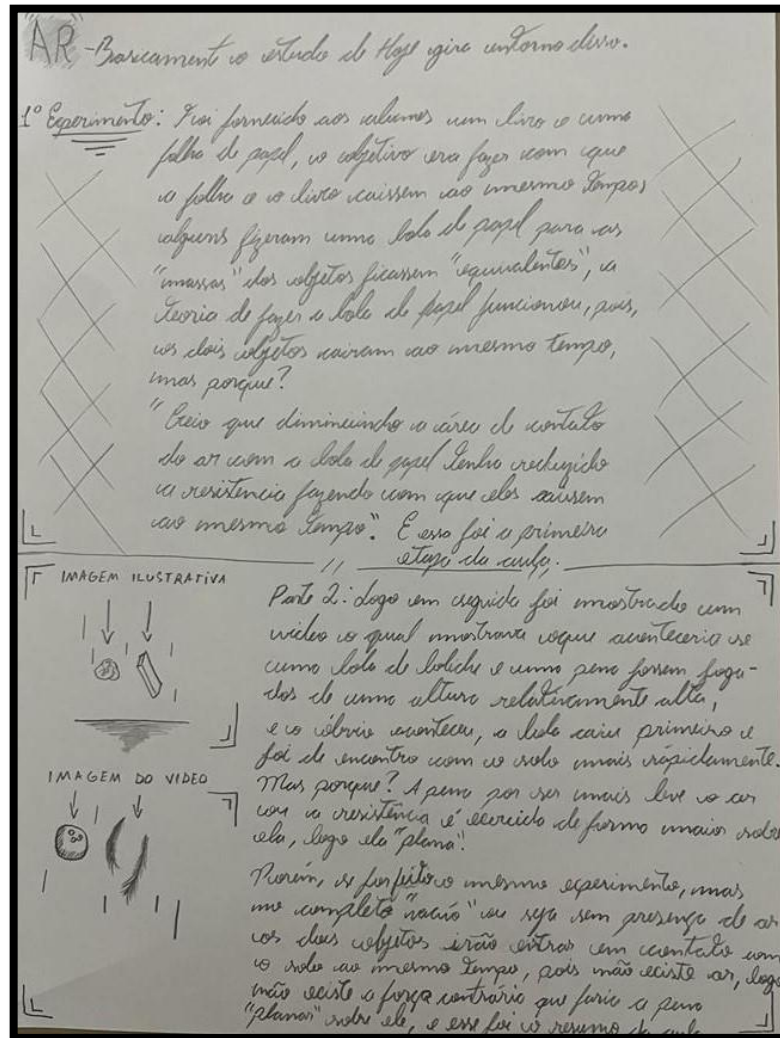 "AR" - Basicamente o estudo de Hoje gira entorno disso.
1º Experimento: Foi fornecido aos alunos um livro e uma
folha de papel, o objetivo era fazer com que
a folha e o livro caissem ao mesmo tempo,
alguns fizeram uma bola de papel para as
"massas" dos objetos ficassem "equivalentes", a
teoria de fazer a bola de papel funcionou, pois,
os dois objetos cairam ao mesmo tempo,
mas porque?
"Creio que diminuindo a área de contato
do ar com a bola de papel tenha reduzido
a resistencia fazendo com que eles caissem
ao mesmo tempo". E essa foi a primeira
etapa da aula.
IMAGEM ILUSTRATIVA
IMAGEM DO VIDEO
Parte 2: Logo em seguida foi mostrado um
video o qual mostrava oque aconteceria se
uma bola de boliche e uma pena fossem joga-
das de uma altura relativamente alta,
e o óbvio aconteceu, a bola caiu primeiro e
foi de encontro com o solo mais rápidamente.
Mas porque? A pena por ser mais leve o ar
ou a resistência é exercida de forma maior sobre
ela, logo ela "plana".
Porém, se for feito o mesmo experimento, mas
no completo "vacuo" ou seja sem presença de ar
os dois objetos irão entrar em contato com
o solo ao mesmo tempo, pois não existe ar, logo
não existe a força contrário que faria a pena
"planar" sobre ele, e esse foi o resumo da aula